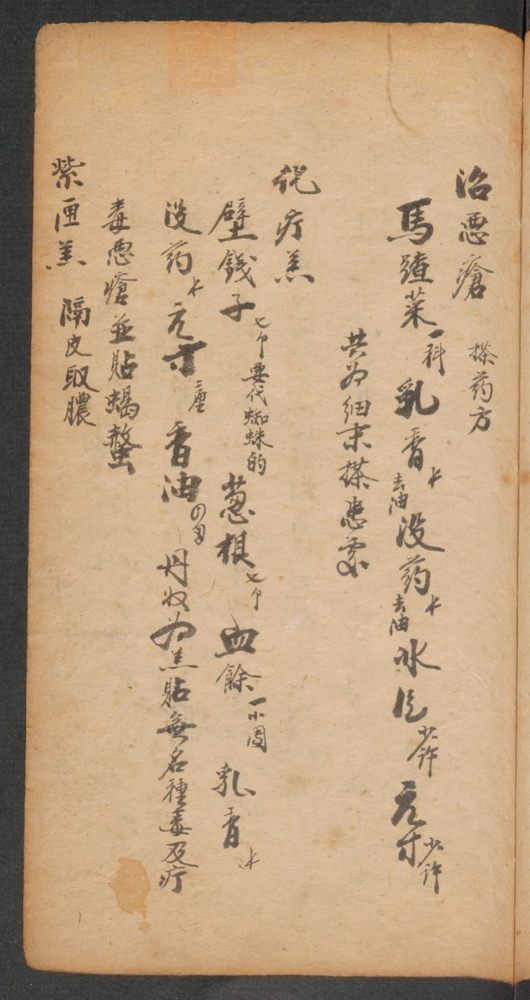 治惡瘡 搽药方
馬踏菜一科 乳香 去油 没药 去油 氷片少許 元寸少許
共为細末搽患處
化疔羔
壁钱子七个要代蜘蛛的 葱根七个 血餘一小团 乳香
没药 元寸二厘 香油四两 丹收为羔貼無名種毒及疔
毒恶瘡並貼蝎螫
紫匣羔 隔皮取膿